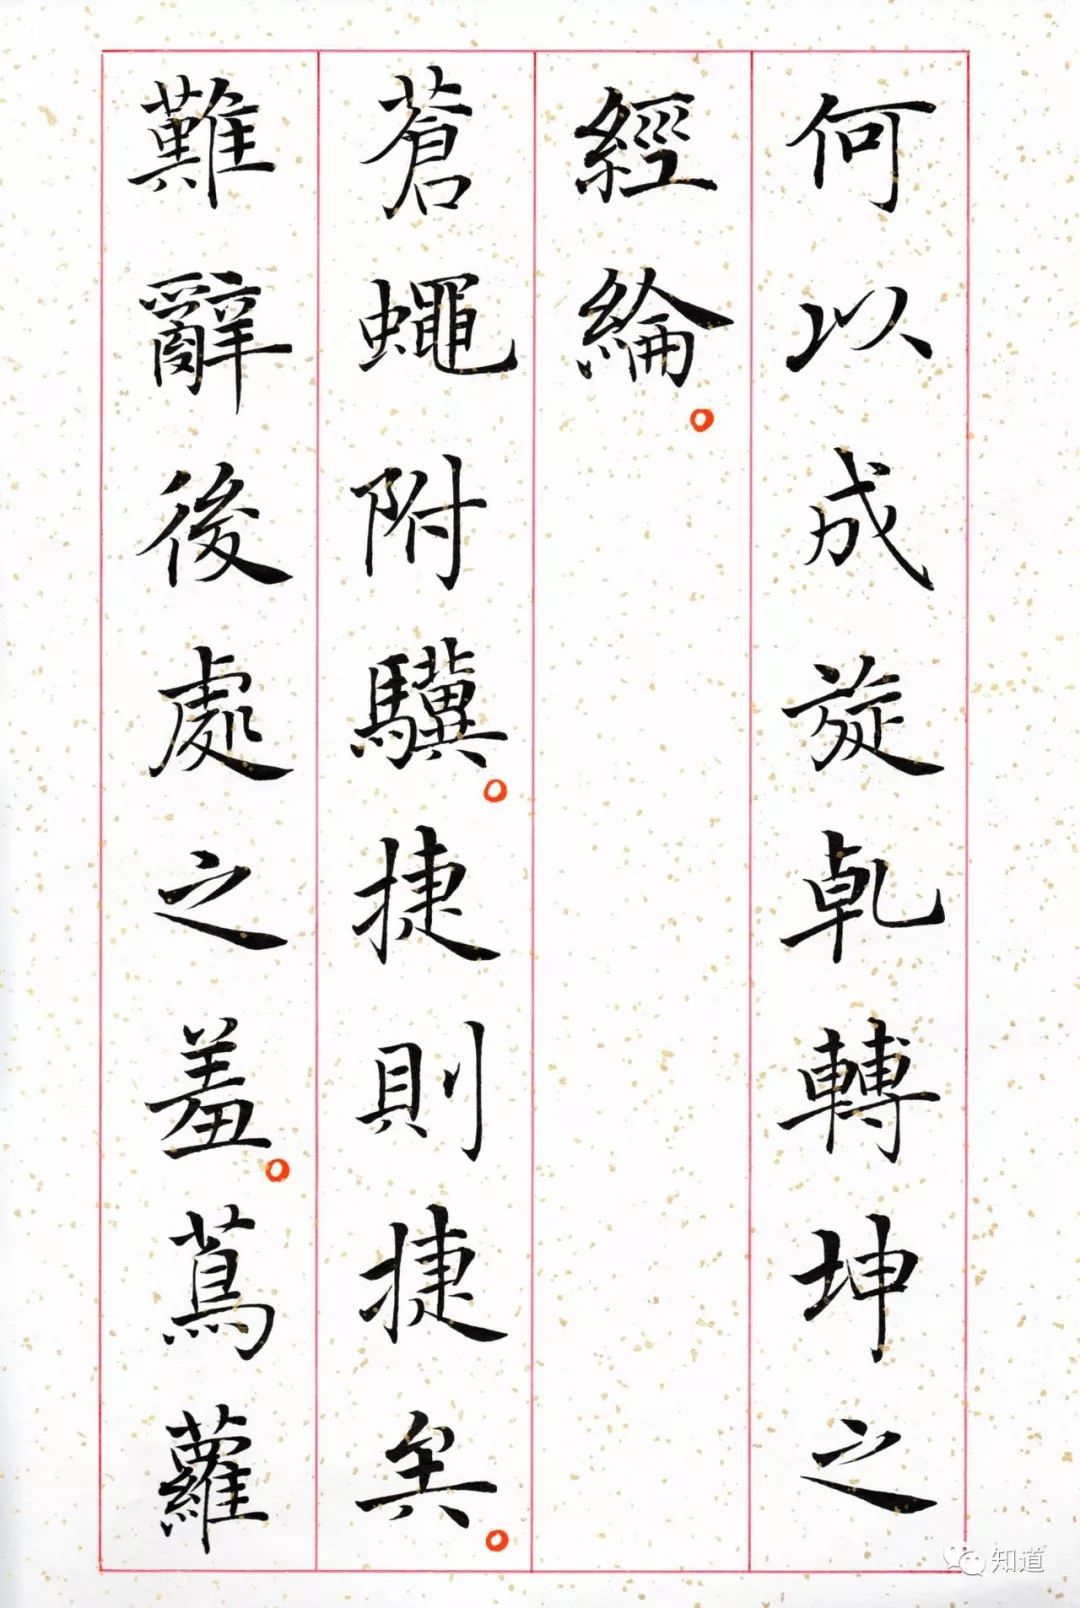 何以成旋乹轉坤之
經綸。
蒼蠅附驥。捷則捷矣。
難辭後處之羞。蔦蘿
知道